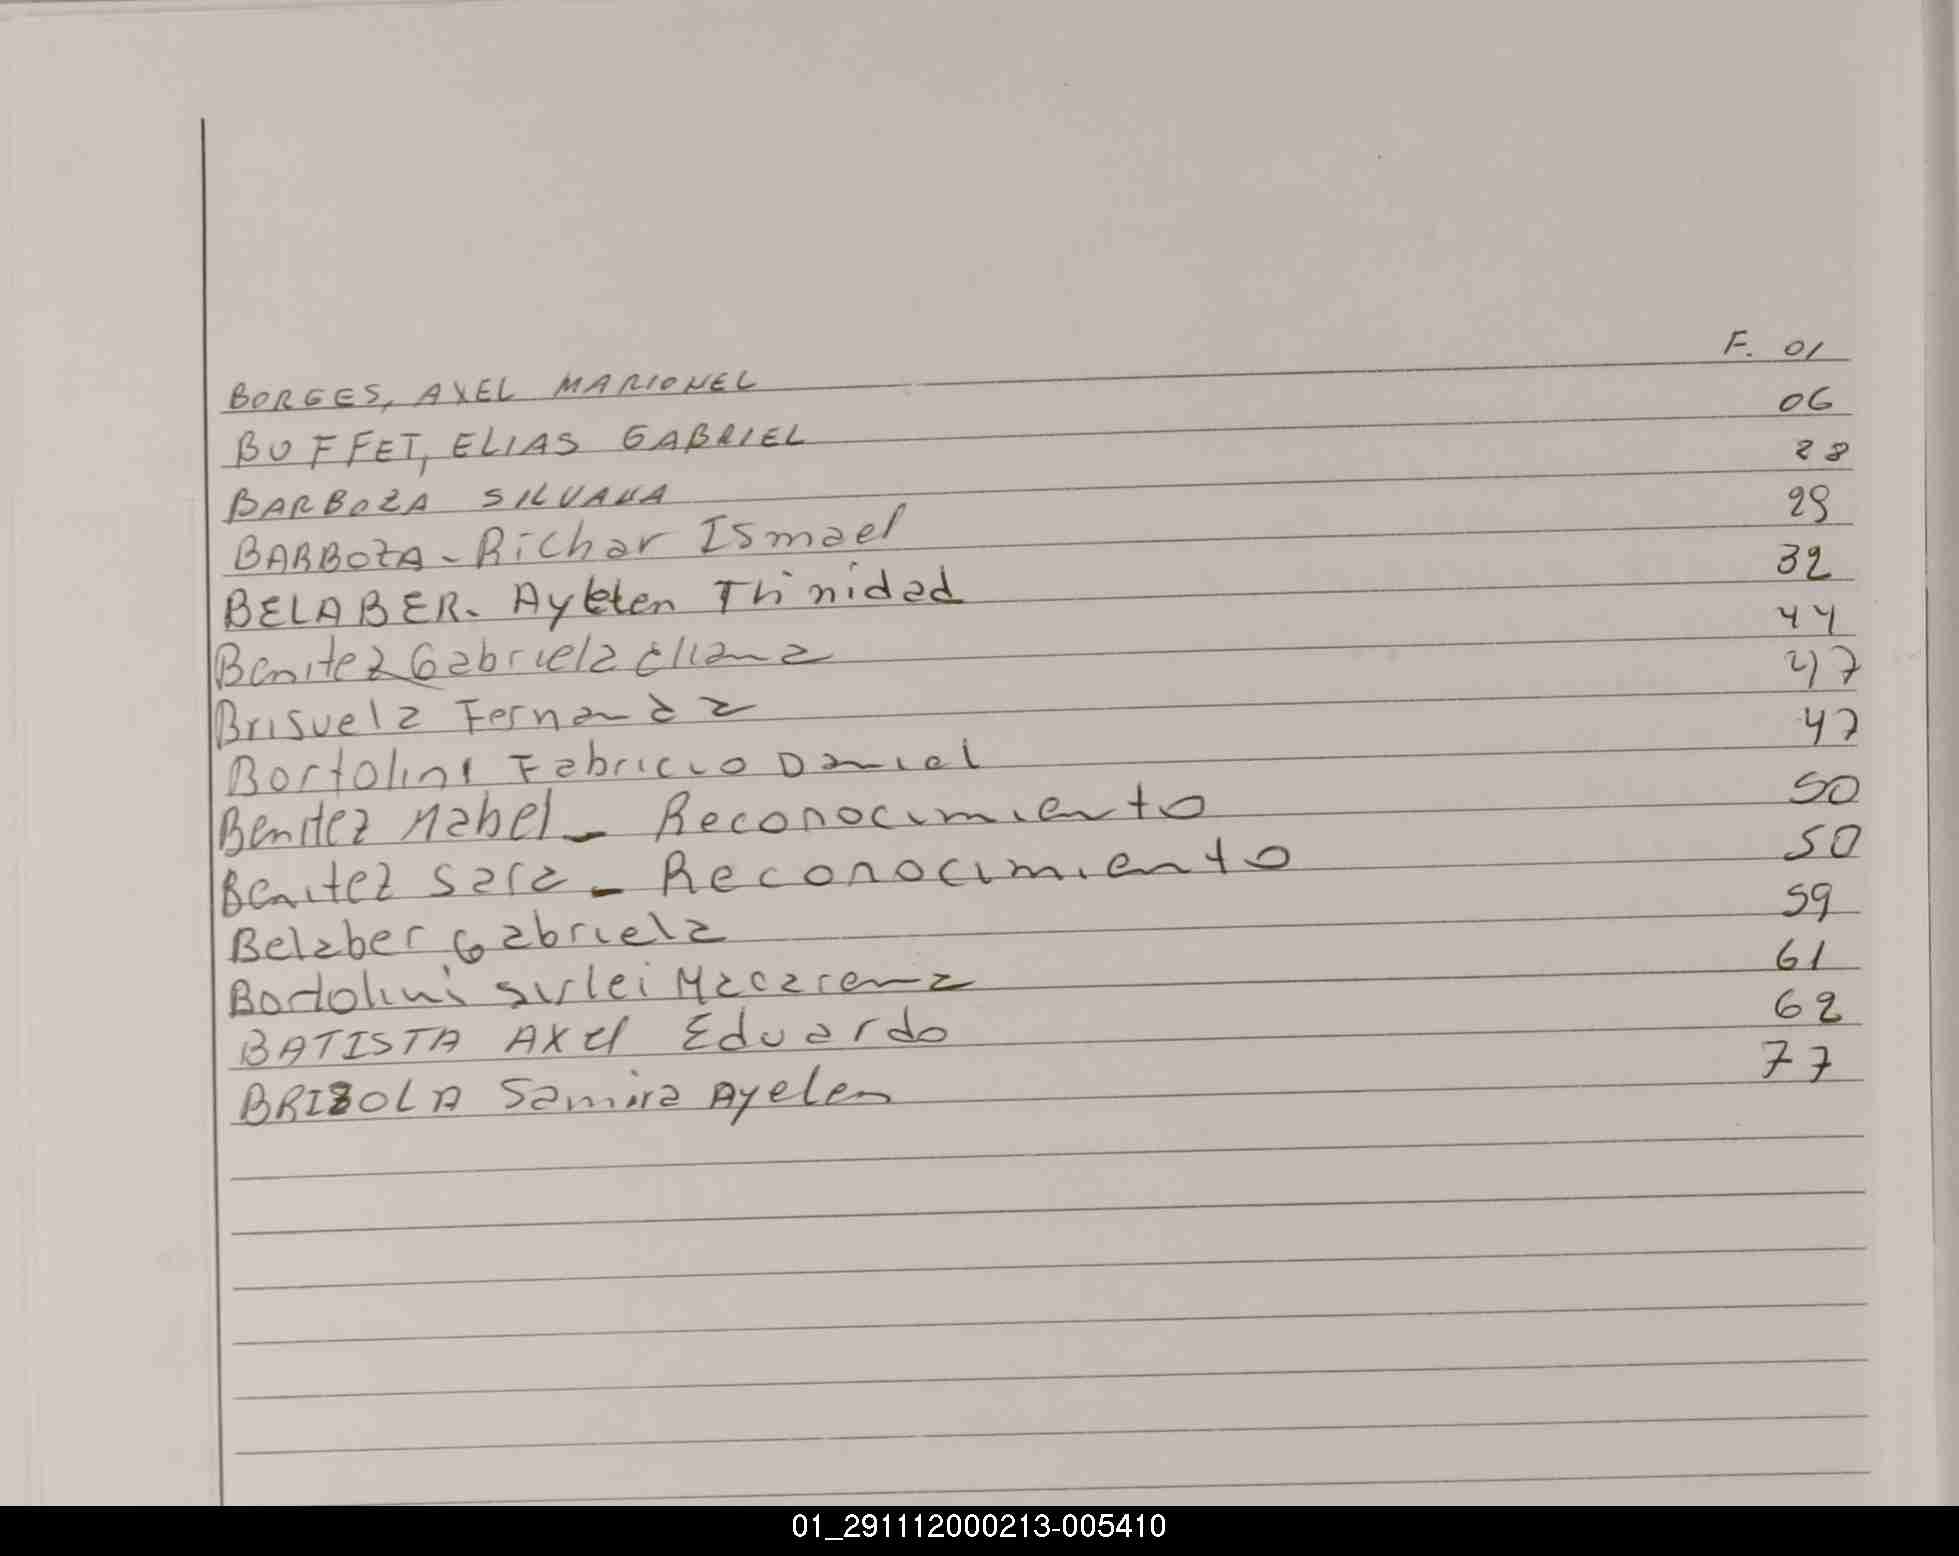 BORGES, AXEL MARIONEL F. 01
BUFFET, ELIAS GABRIEL 06
BARBOZA SILVANA 28
BARBOZA - Richar Ismael 29
BELABER. Ayelen Thinidad 32
Benitez Gabriela Eliana 44
Brisuela Fernanda 47
Bortolini Fabricio Daniel 47
Benitez Mabel - Reconocimiento 50
Benitez Sara - Reconocimiento 50
Belaber Gabriela 59
Bortolini Sirlei Macarena 61
BATISTA AXel Eduardo 62
BRIZOLA Samira Ayelen 77
01_291112000213-005410